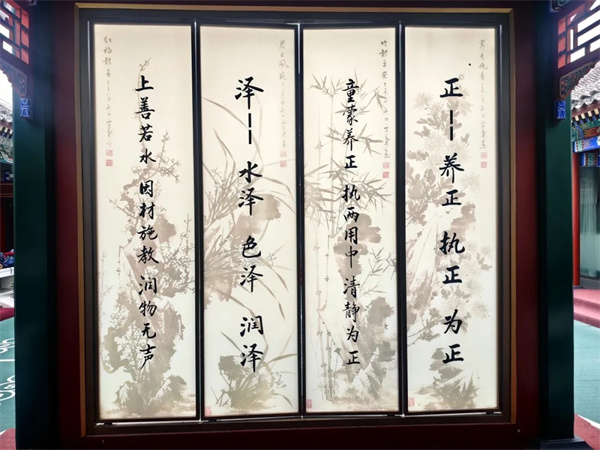 正——养正 执正 为正
童蒙养正 执两用中 清静为正
泽——水泽 色泽 润泽
上善若水 因材施教 润物无声